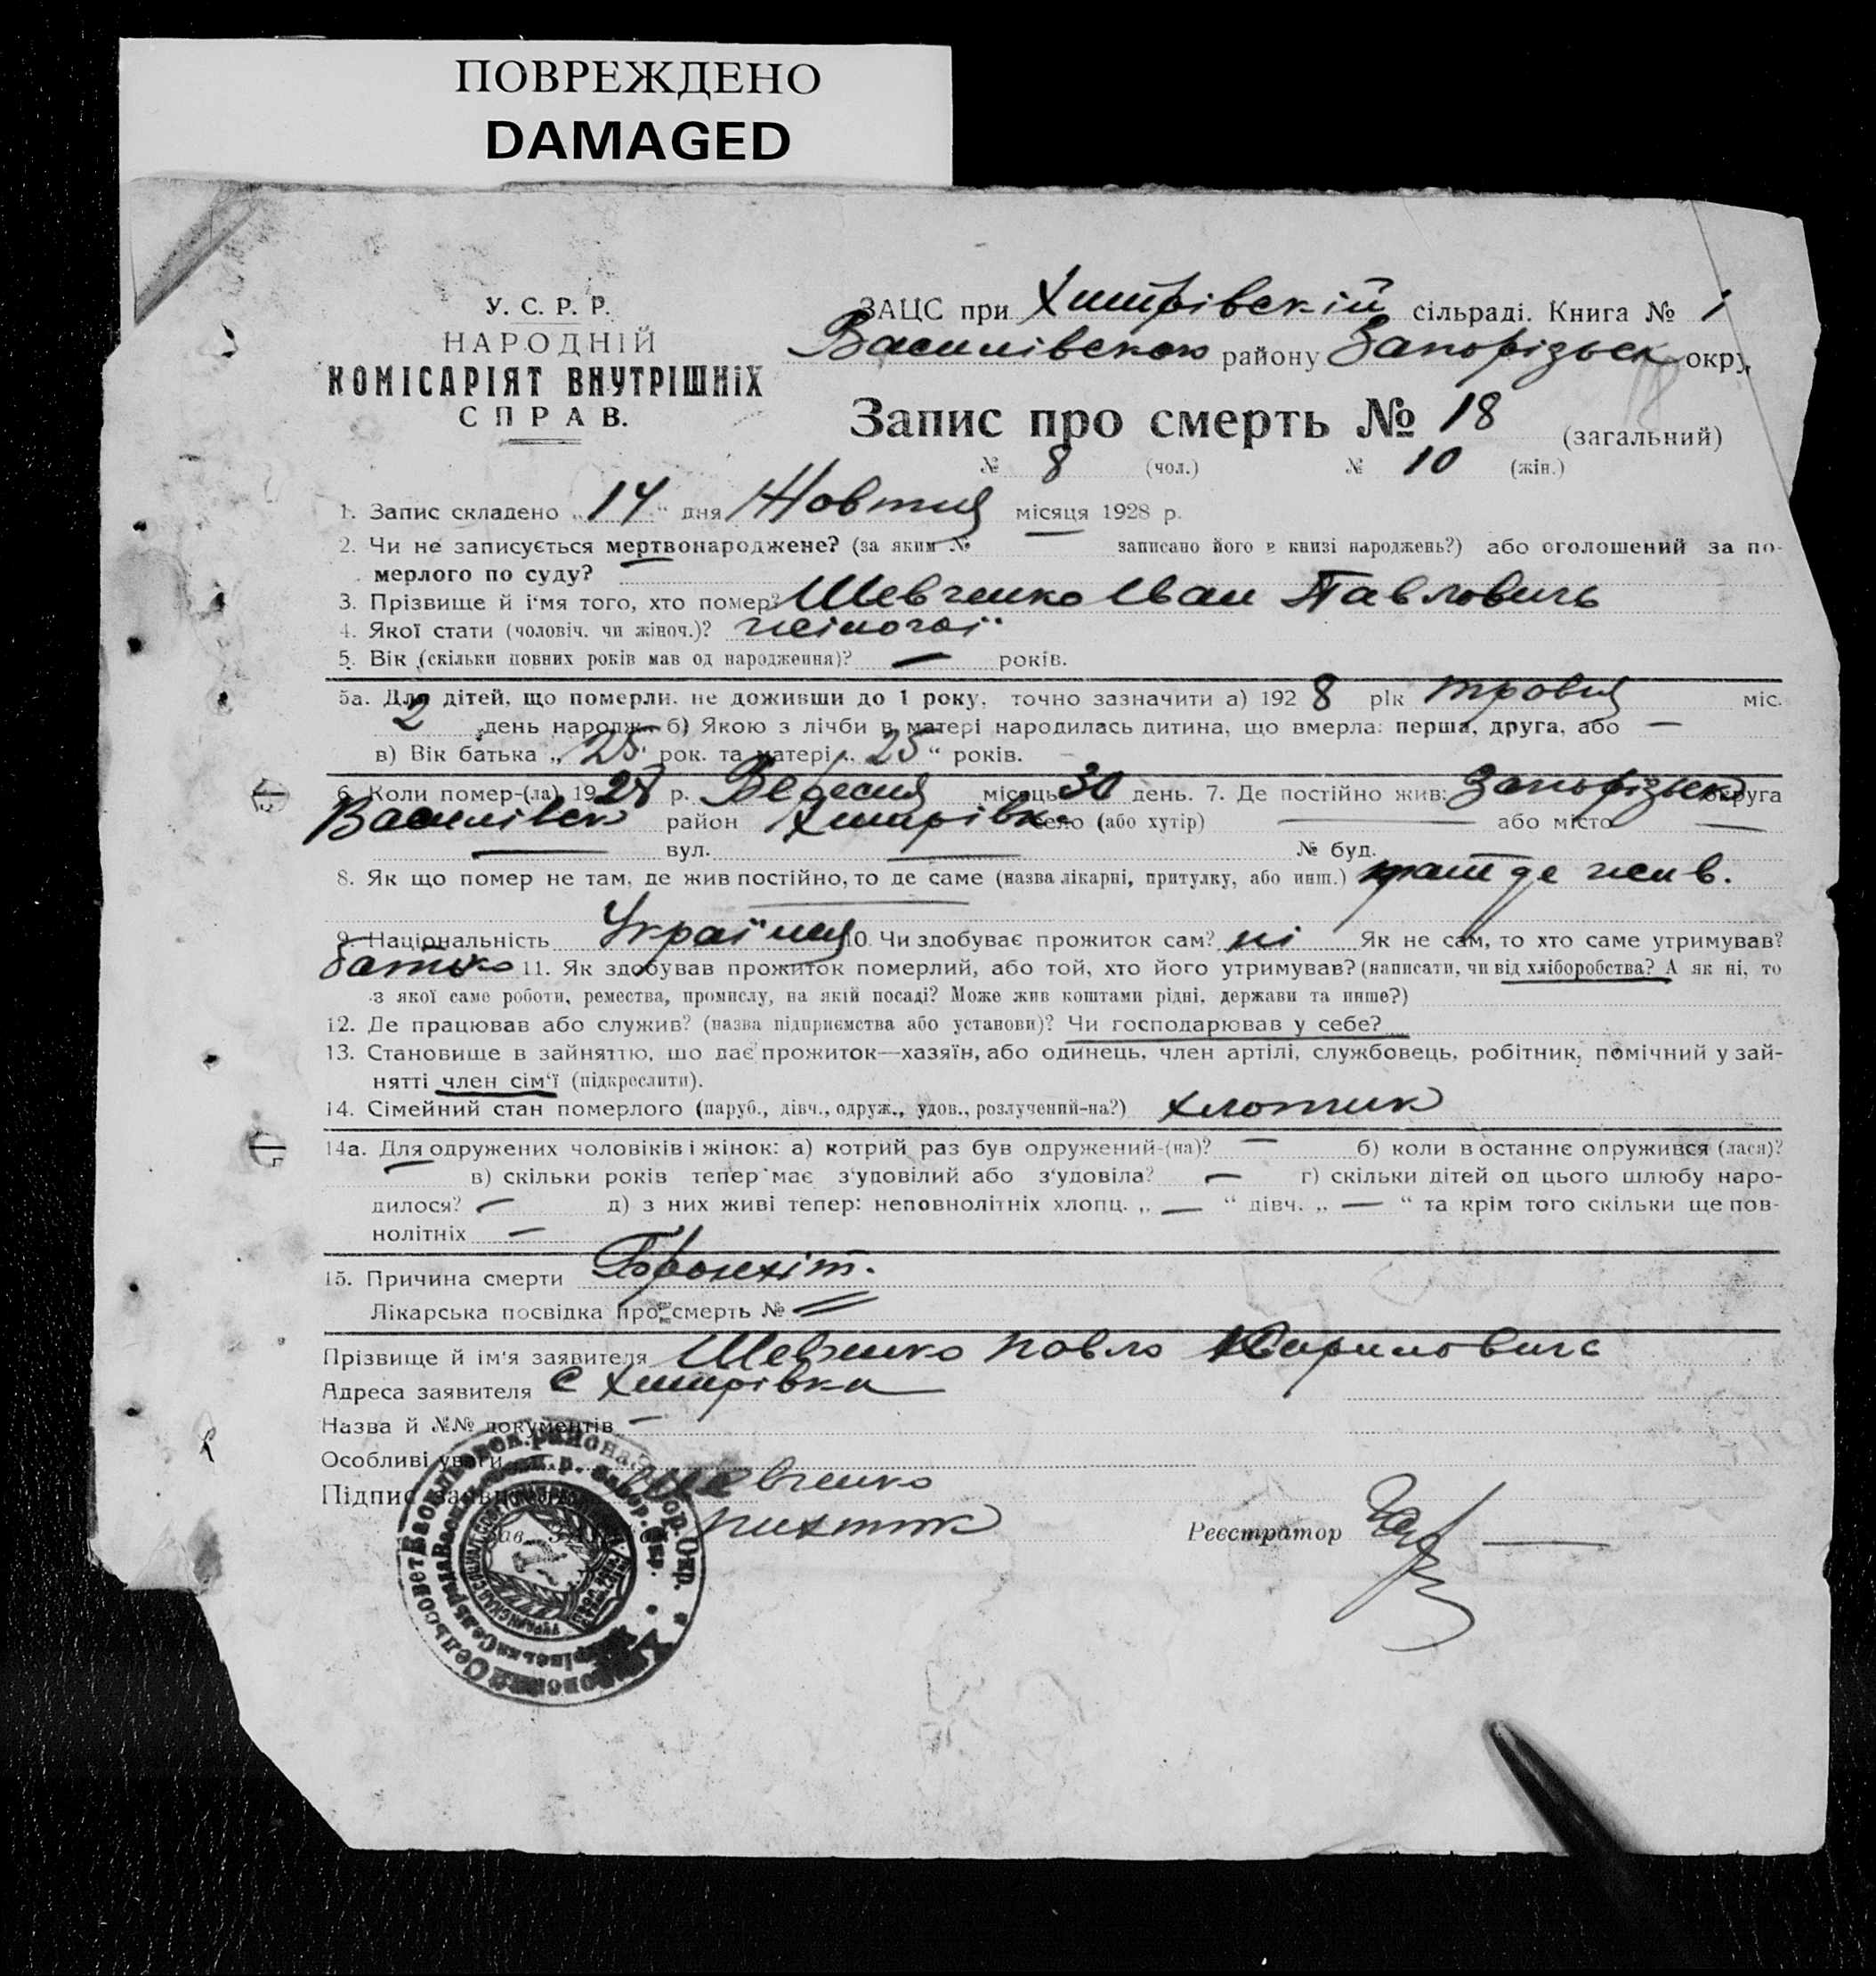 ПОВРЕЖДЕНО
DAMAGED
У. С. Р. Р.
НАРОДНІЙ
КОМІСАРІЯТ ВНУТРІШНІХ
СПРАВ.
ЗАЦС при Хитрівській сільраді. Книга № 1
Василівською району Запорізьск окру
18
Запис про смерть № 18 (загальний)
№ 8 (чол.) № 10 (жін.)
1. Запис складено „14“ дня Жовтня місяця 1928 р.
2. Чи не записується мертвонароджене? (за яким № записано його в книзі народжень?) або оголошений за по-
мерлого по суду?
3. Прізвище й і'мя того, хто помер? Шевченко Іван Павлович
4. Якої стати (чоловіч. чи жіноч.)?
5. Вік (скільки повних років мав од народження)? — років.
5а. Для дітей, що померли, не доживши до 1 року, точно зазначити а) 1928 рік травня міс.
2 день народж. б) Якою з лічби в матері народилась дитина, що вмерла: перша, друга, або —
в) Вік батька „25“ рок. та матері „25“ років.
6. Коли помер-(ла) 1928 р. Вересня місяць 30 день. 7. Де постійно жив: Запорізьск округа
Василівск район Хитрівка село (або хутір) — або місто —
— вул. — № буд. —
8. Як що помер не там, де жив постійно, то де саме (назва лікарні, притулку, або инш.) там де жив.
9. Національність Українця 10. Чи здобуває прожиток сам? ні Як не сам, то хто саме утримував?
батько 11. Як здобував прожиток померлий, або той, хто його утримував? (написати, чи від хліборобства? А як ні, то
з якої саме роботи, ремества, промислу, на якій посаді? Може жив коштами рідні, держави та инше?)
12. Де працював або служив? (назва підприємства або установи)? Чи господарював у себе?
13. Становище в зайняттю, що дає прожиток—хазяїн, або одинець, член артілі, службовець, робітник, помічний у зай-
нятті член сім'ї (підкреслити).
14. Сімейний стан померлого (паруб., дівч., одруж., удов., розлучений-на?) хлопчик
14а. Для одружених чоловіків і жінок: а) котрий раз був одружений-(на)? — б) коли востаннє одружився (лася)?
— в) скільки років тепер має з'удовілий або з'удовіла? — г) скільки дітей од цього шлюбу наро-
дилося? — д) з них живі тепер: неповнолітніх хлопц. „—“ дівч. „—“ та крім того скільки ще пов-
нолітніх —
15. Причина смерти Бронхіт.
Лікарська посвідка про смерть №
Прізвище й ім'я заявителя Шевченко Павло Кирилович
Адреса заявителя с Хитрівка
Назва й №№ документів —
Особливі уваги
Підпис заявителя Шевченко
Реєстратор